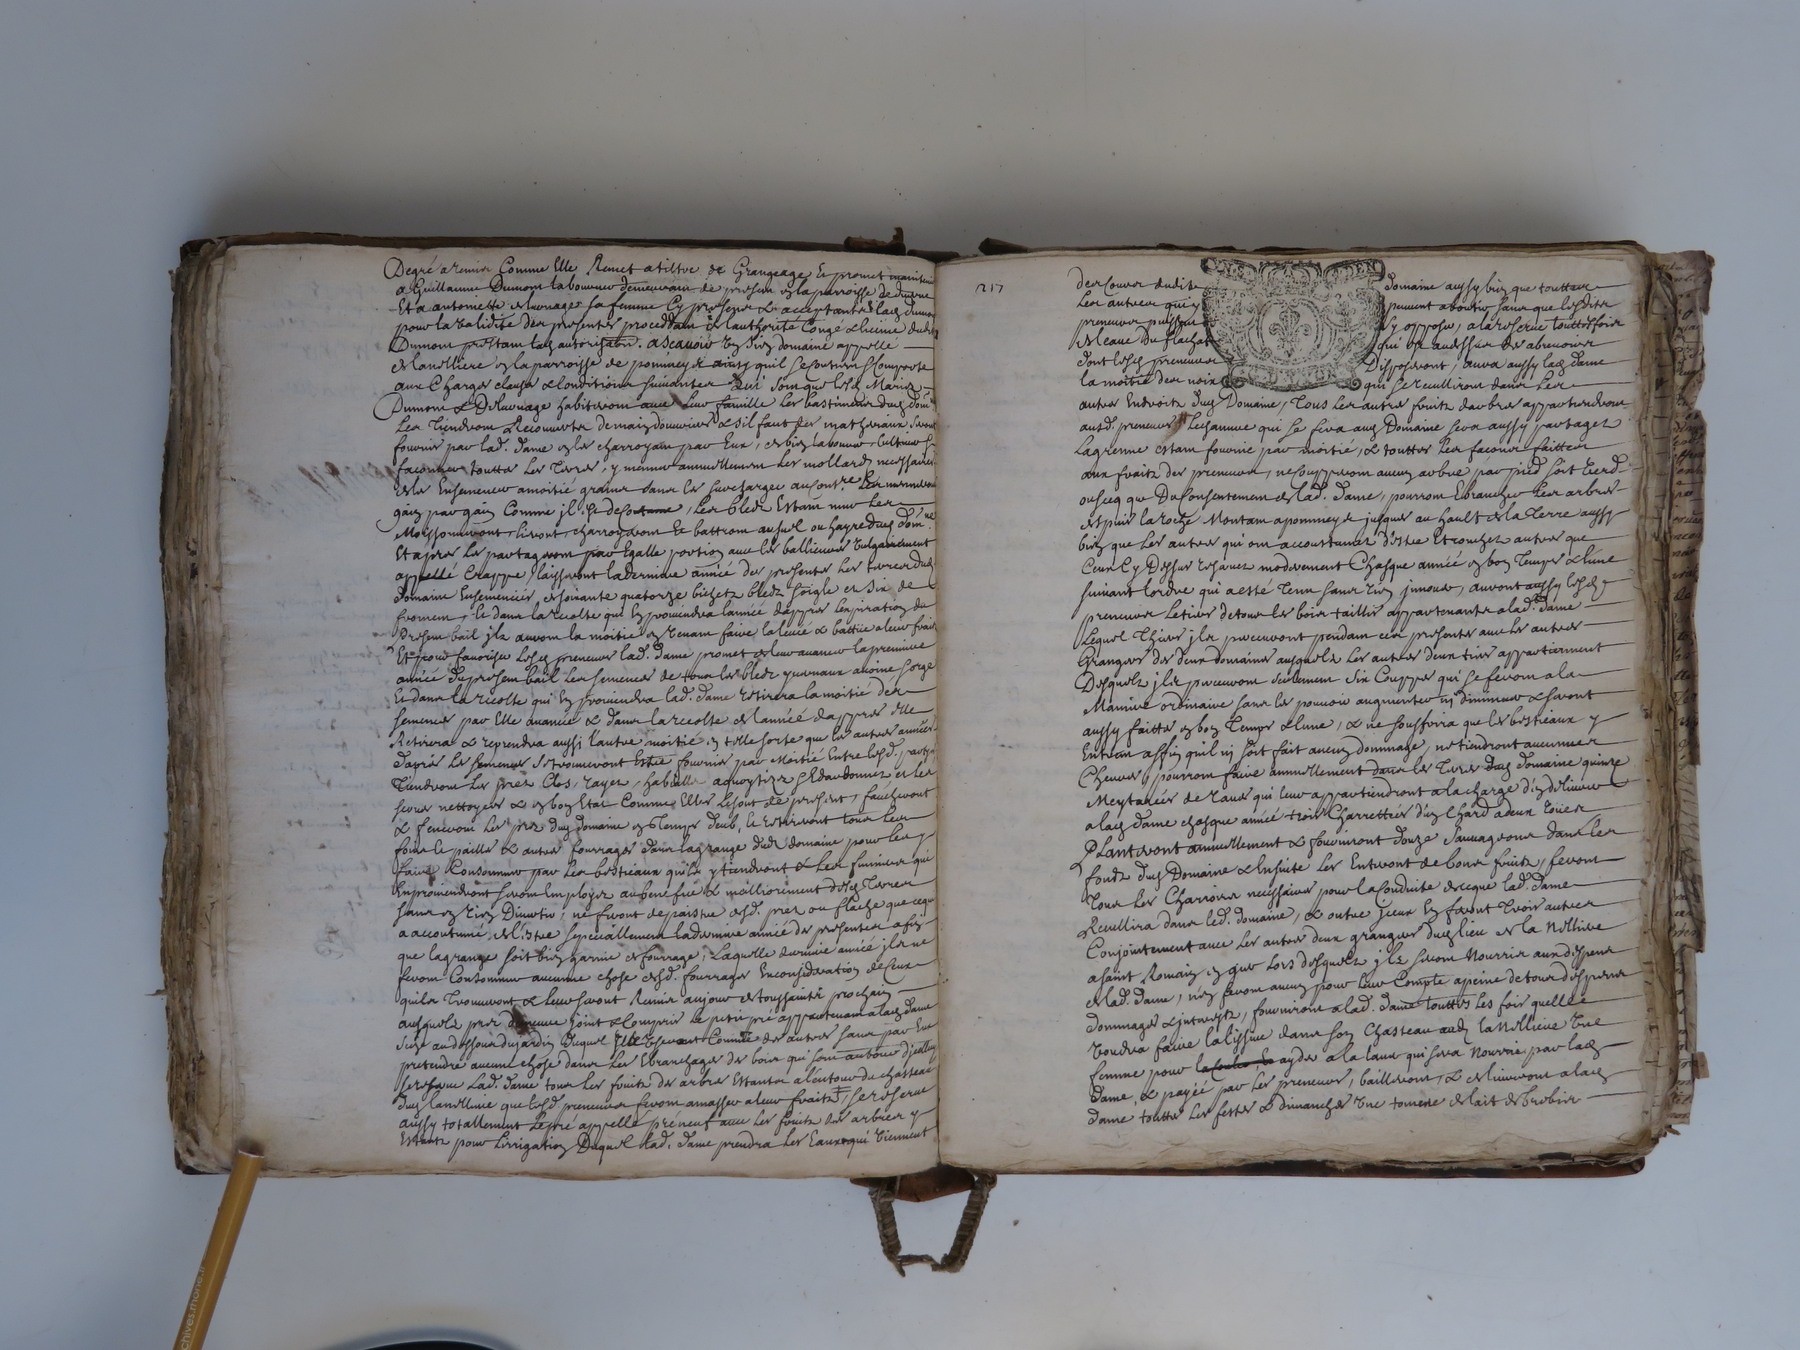 Degré a remis Comme Elle Remet a tiltre de Grangeage Et promet maintenir
a Guillaume Dumont laboureur demeurant de present en la parroisse de
Et a antoinette deluvnage sa femme Cy presens & acceptants lad. dumont
pour la validité des presentes proceddant de lauthorité Congé & licence dud.
Dumont prestant lad. autorisation. ascavoir Un sien domaine appellé
de la nilliere en la parroisse de pomineys ainsy quil se contient & comporte
aux Charges clauses & Conditions suivantes Qui sont que lesd. Mariez
Dumont & Deluvnage habiteront avec leur famille les bastimens dud. dom.
Les Tiendront Recouverts demain douvrier & sil faut des matheriaux, seront
fournis par lad. dame & les charroyant par Eux, & bien labourer Cultiver &
façonner touttes les Terres, y mener annuellement les mollards necessaires
& les Ensemencer a moitié graine sans les surcharger au contre.
gain par gain Comme jl se doit, les bleds Estant murs les
Moissonneront, lieront, charroyeront & battront au suel ou hayre dud. dom.ne
Et apres les partageront par Egalle portion avec les ballieures vulgairement
appellé Crappe, laisseront la derniere année des presentes les terres dud.
domaine Ensemencées de soixante quatorze bichets bleds soigle et dix de
froment, & dans la recolte qui en proviendra l'année d'appres l'expiration du
present bail jls auront la moitié en venant faire la levée & battue a leur fraits
Et pour favoriser lesd. preneurs lad. dame promet de leur avancer la premiere
année du present bail les semences de tous les bleds yvernaux avoine & orge
Et dans la recolte qui en proviendra lad. dame retirera la moitié des
semences par Elle avancée & dans la recolte de l'année d'appres Elle
Retirera & reprendra aussi l'autre moitié en telle sorte que les autres années
d'apres les semences se trouveront Estre fournies par Moitié Entre lesd. parties
Tiendront les prez Clos, rayez, habillez &
serres nettoyées & en bon Etat Comme Elles le sont de present, faucheront
& feneront les prez dud. domaine en Temps deub, & retireront tous les
foins & pailles & autres fourrages dans la grange dud. domaine pour les y
faire Consommer par les bestieaux quils y tiendront & les fumiers qui
En proviendront seront Employez au benefice & melliorement desd. Terres
sans en rien Divertir; ne feront depaistre esd. prez ou flache que ce qui
a accoutumé de l'Estre specciallement la derniere année des presentes afin
que la grange soit bien garnie de fourrage; Laquelle derniere année jls ne
feront Consommer aucune chose desd. fourrages En consideration de Ceux
quils Trouveront & leur seront Remis au jour de toussaints prochain
ausquels prez demeure joint & Compris le petit pré appartenant a lad. dame
size au dessous du jardin Duquel Elle
pretendre aucune chose dans les Ebranchages des bois qui sont au tour
se reserve Lad. dame tous les fruits des arbres Estants a l'entour du chasteau
dud. la nilliere que lesd. preneurs feront amasser a leur fraits, se reserve
aussy totallement le pré appellé préneuf avec les fruits des arbres y
Estants pour l'irrigation Duquel lad. dame prendra les Eaux qui Viennent
217
des Couver dudit domaine aussy bien que touttes
Les autres qui y peuvent aboutir sans que lesdits
preneurs puissent s'y opposer, a la reserve touttesfois
de l'eau Du flachat qui est au dessus des abreuvoirs
dont lesd. preneurs Disposeront, aura aussy lad. dame
la moitié des noix qui se ceuilliront dans les
autres Endroits dud. Domaine, Tous les autres fruits d'arbres appartiendront
ausd. preneurs, Le chanvre qui se fera aud. Domaine sera aussy partagé
La grenne estant fournie par moitié, & touttes les façons faittes
aux fraits des preneurs, ne coupperont aucun arbre par pied soit verd
ou secq que Du consentement de lad. dame, pourront Ebrancher les arbres
depuis la roche Montant a pommeys jusques au hault de la Terre aussy
bien que les autres qui ont accoustumez d'Estre Etronchez autres que
Ceux Cy Dessus reservez moderement Chasque année en bon Temps & lune
suivant l'ordre qui a esté Tenu sans rien jnnover, auront aussy lesd.
preneurs Le tiers de tous les bois taillis appartenants a lad. Dame
Lequel Thiers jls prendront pendant ces presentes avec les autres
Grangers des deux domaines ausquels les autres deux tiers appartiennent
Desquels jls prendront seulement six Couppes qui se feront a la
Maniere ordinaire sans les pouvoir augmenter ny diminuer & seront
aussy faittes en bon Temps & lune, & ne souffrira que les bestieaux y
Entrent affin quil ny soit fait aucun dommage, ne tiendront aucunnes
Chevres, pourront faire annuellement dans les Terres dud. domaine quinze
Meytanées de raves qui leur appartiendront a la charge d'en delivrer
a lad. dame chasque année trois Charrettées d'un Chard a deux roües
Planteront annuellement & fourniront douze sauvageons dans les
fonds dud. Domaine & Ensuite les Enteront de bons fruits, feront
Tous les Charrois necessaires pour la conduite de ce que lad. dame
Recullira dans led. domaine, & outre jceux En feront Trois autres
Conjointement avec les autres deux grangers dud. lieu de la Nilliere
a saint Romain en gier Lors desquels jls seront Nourris aux despens
de lad. dame, n'en feront aucun pour Leur Compte a peine de tous despens
dommages & jnterests, fourniront a lad. dame touttes les fois quelle
voudra faire la lissive dans son Chasteau aud. la Nilliere Une
femme pour ayder a la laver qui sera Nourrie par lad.
Dame, & payée par les preneurs, bailleront, & delivreront a lad.
dame touttes les festes & dimanches Une tomme de lait de brebis